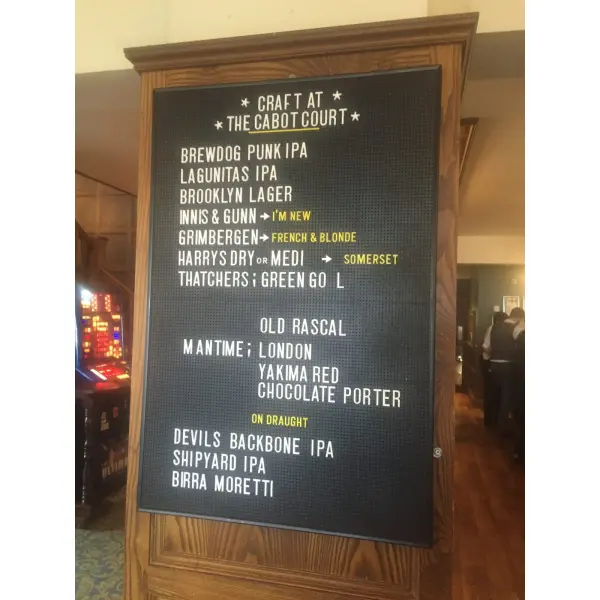 ★ CRAFT AT ★
★ THE CABOT COURT ★
BREWDOG PUNK IPA
LAGUNITAS IPA
BROOKLYN LAGER
INNIS & GUNN → I'M NEW
GRIMBERGEN → FRENCH & BLONDE
HARRYS DRY OR MEDI → SOMERSET
THATCHERS ; GREEN GO L
OLD RASCAL
MANTIME ; LONDON
YAKIMA RED
CHOCOLATE PORTER
ON DRAUGHT
DEVILS BACKBONE IPA
SHIPYARD IPA
BIRRA MORETTI